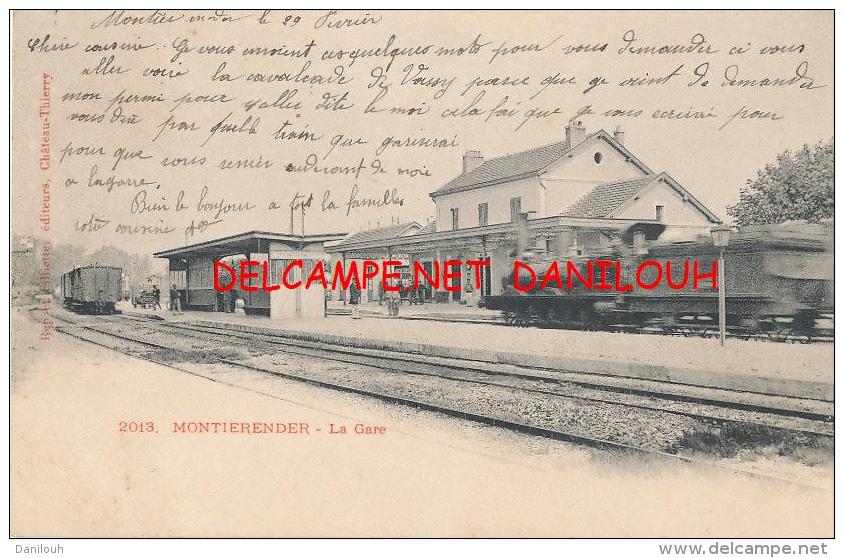 Montier en der le 29 Fevrier
Chère cousine. Je vous envoient ces quelques mots pour vous demander si vous
aller voire la cavalcade de Vassy parce que je vient de demander
mon permi pour y aller dite le moi cela fai que je vous ecrivé pour
vous dire par quelle train que
pour que vous venier de moie
a la garre.
Bien le bonjour a tout la familles
votre cousine
Reg. et Guilhotte éditeurs, Château-Thierry
DELCAMPE.NET DANILOUH
2013. MONTIERENDER - La Gare
Danilouh
www.delcampe.net